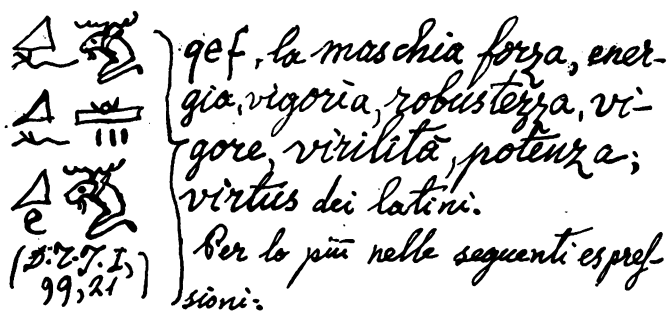 qef, la maschia forza, ener-
gia, vigoria, robustezza, vi-
gore, virilità, potenza;
virtus dei latini.
Per lo più nelle seguenti espres-
sioni:
99, 21